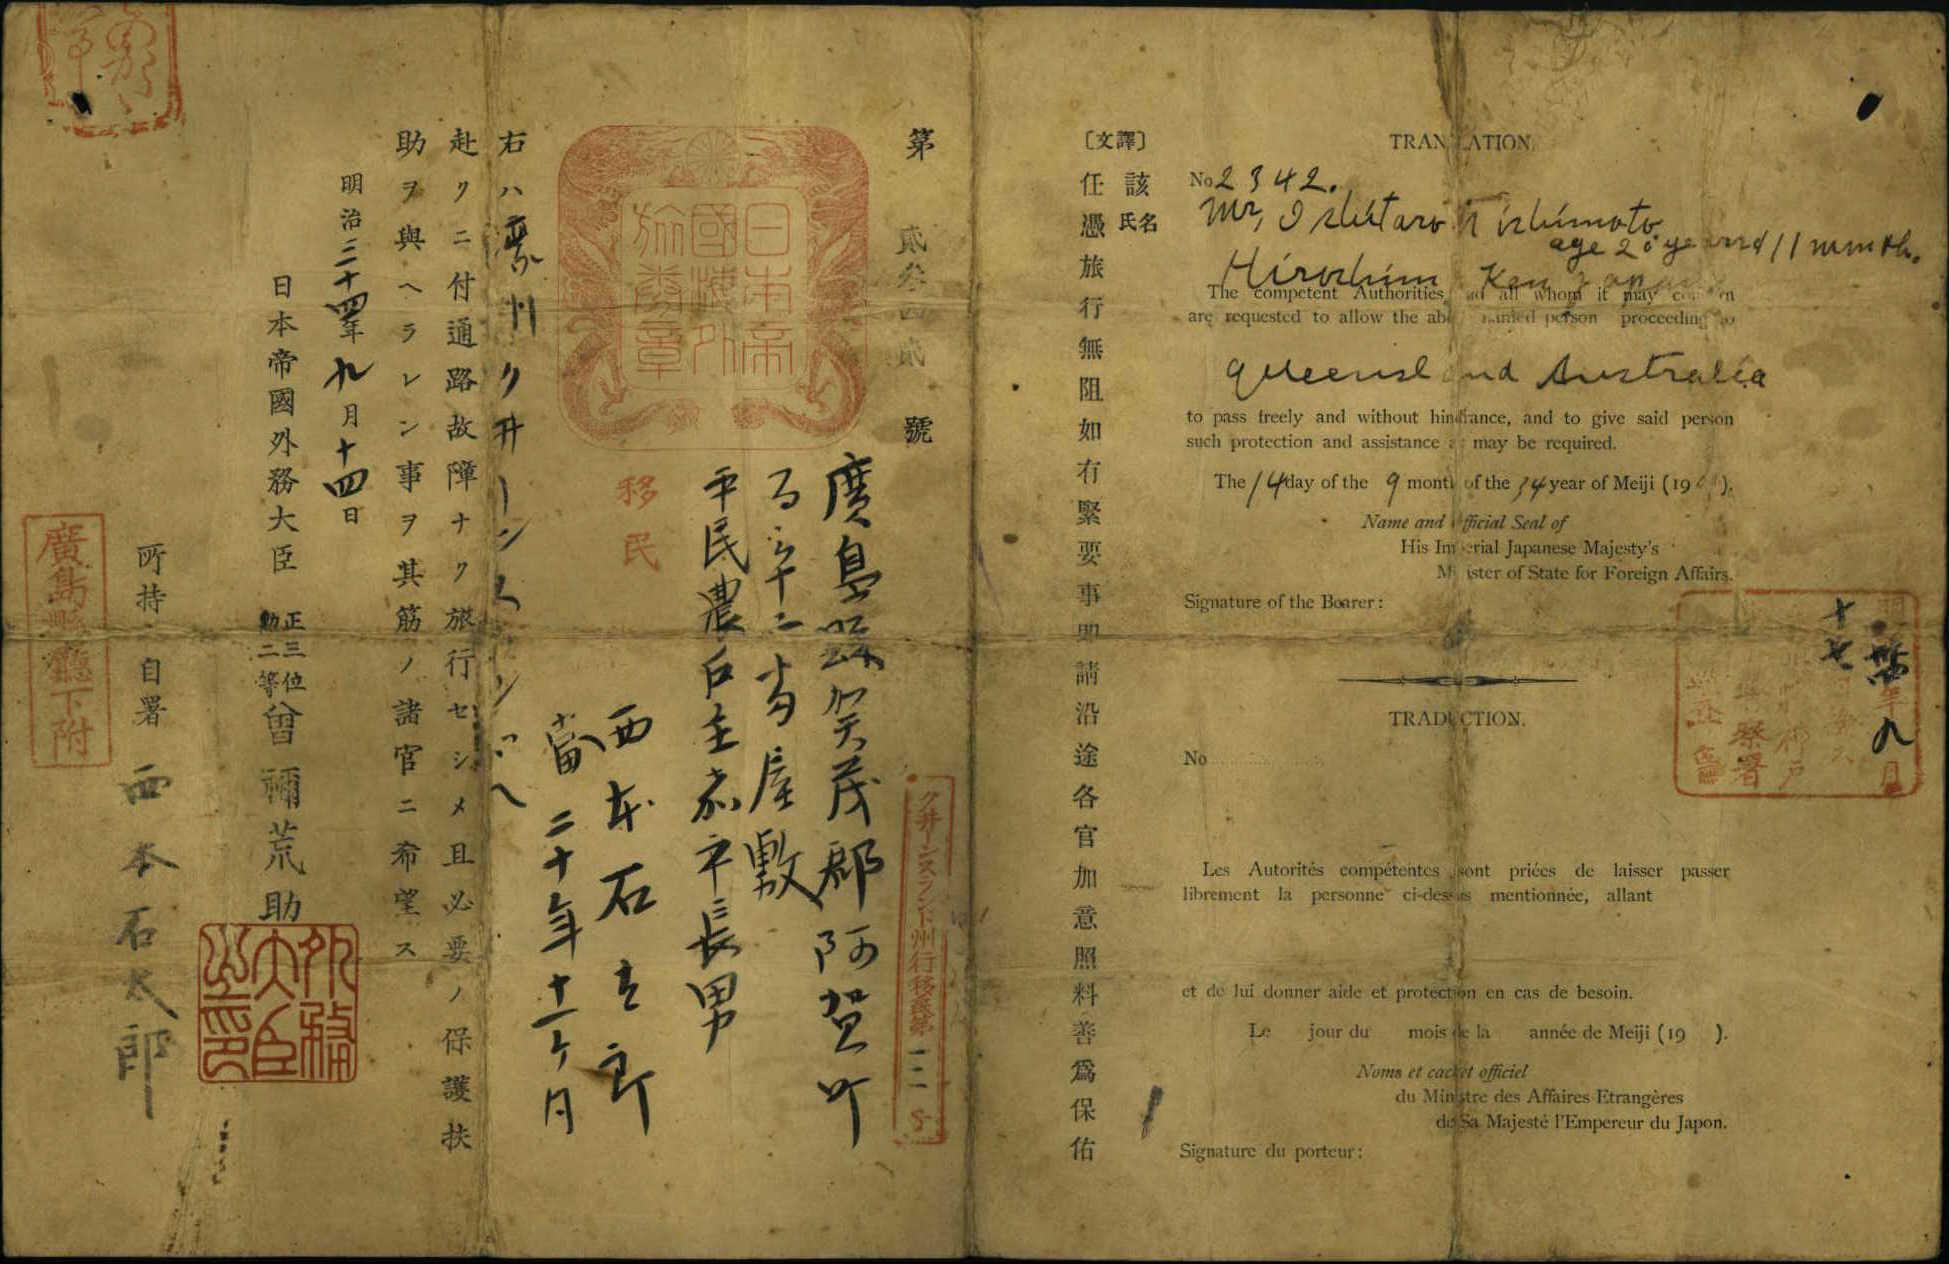 第貳参四貳號
日本帝
國海外
旅券章
廣島縣賀茂郡阿賀町
屋敷
平民農戸主 長男
西本石太郎
二十年十一ヶ月
移民
右ハ濠州クヰーンスランドへ
赴クニ付通路故障ナク旅行セシメ且必要ノ保護扶
助ヲ與ヘラレン事ヲ其筋ノ諸官ニ希望ス
明治三十四年九月十四日
日本帝國外務大臣 正三位勲二等曾禰荒助
外務大臣之印
所持自署 西本石太郎
廣島縣廳下附
クヰーンスランド州行移民第
〔譯文〕
該氏名
任憑旅行無阻如有緊要事即請沿途各官加意照料善爲保佑
TRANSLATION.
No 2342.
Mr, Ishitaro Nishimoto
age 20 years 11 month.
Hiroshima Ken Japan
The competent Authorities and all whom it may concern
are requested to allow the above named person proceeding to
Queensland Australia
to pass freely and without hindrance, and to give said person
such protection and assistance as may be required.
The 14 day of the 9 month of the 34 year of Meiji (1901).
Name and Official Seal of
His Imperial Japanese Majesty's
Minister of State for Foreign Affairs.
Signature of the Bearer:
明 年九月
十七
察署
TRADUCTION.
No
Les Autorités compétentes sont priées de laisser passer
librement la personne ci-dessus mentionnée, allant
et de lui donner aide et protection en cas de besoin.
Le jour du mois de la année de Meiji (19 ).
Noms et cachet officiel
du Ministre des Affaires Etrangères
de Sa Majesté l'Empereur du Japon.
Signature du porteur: